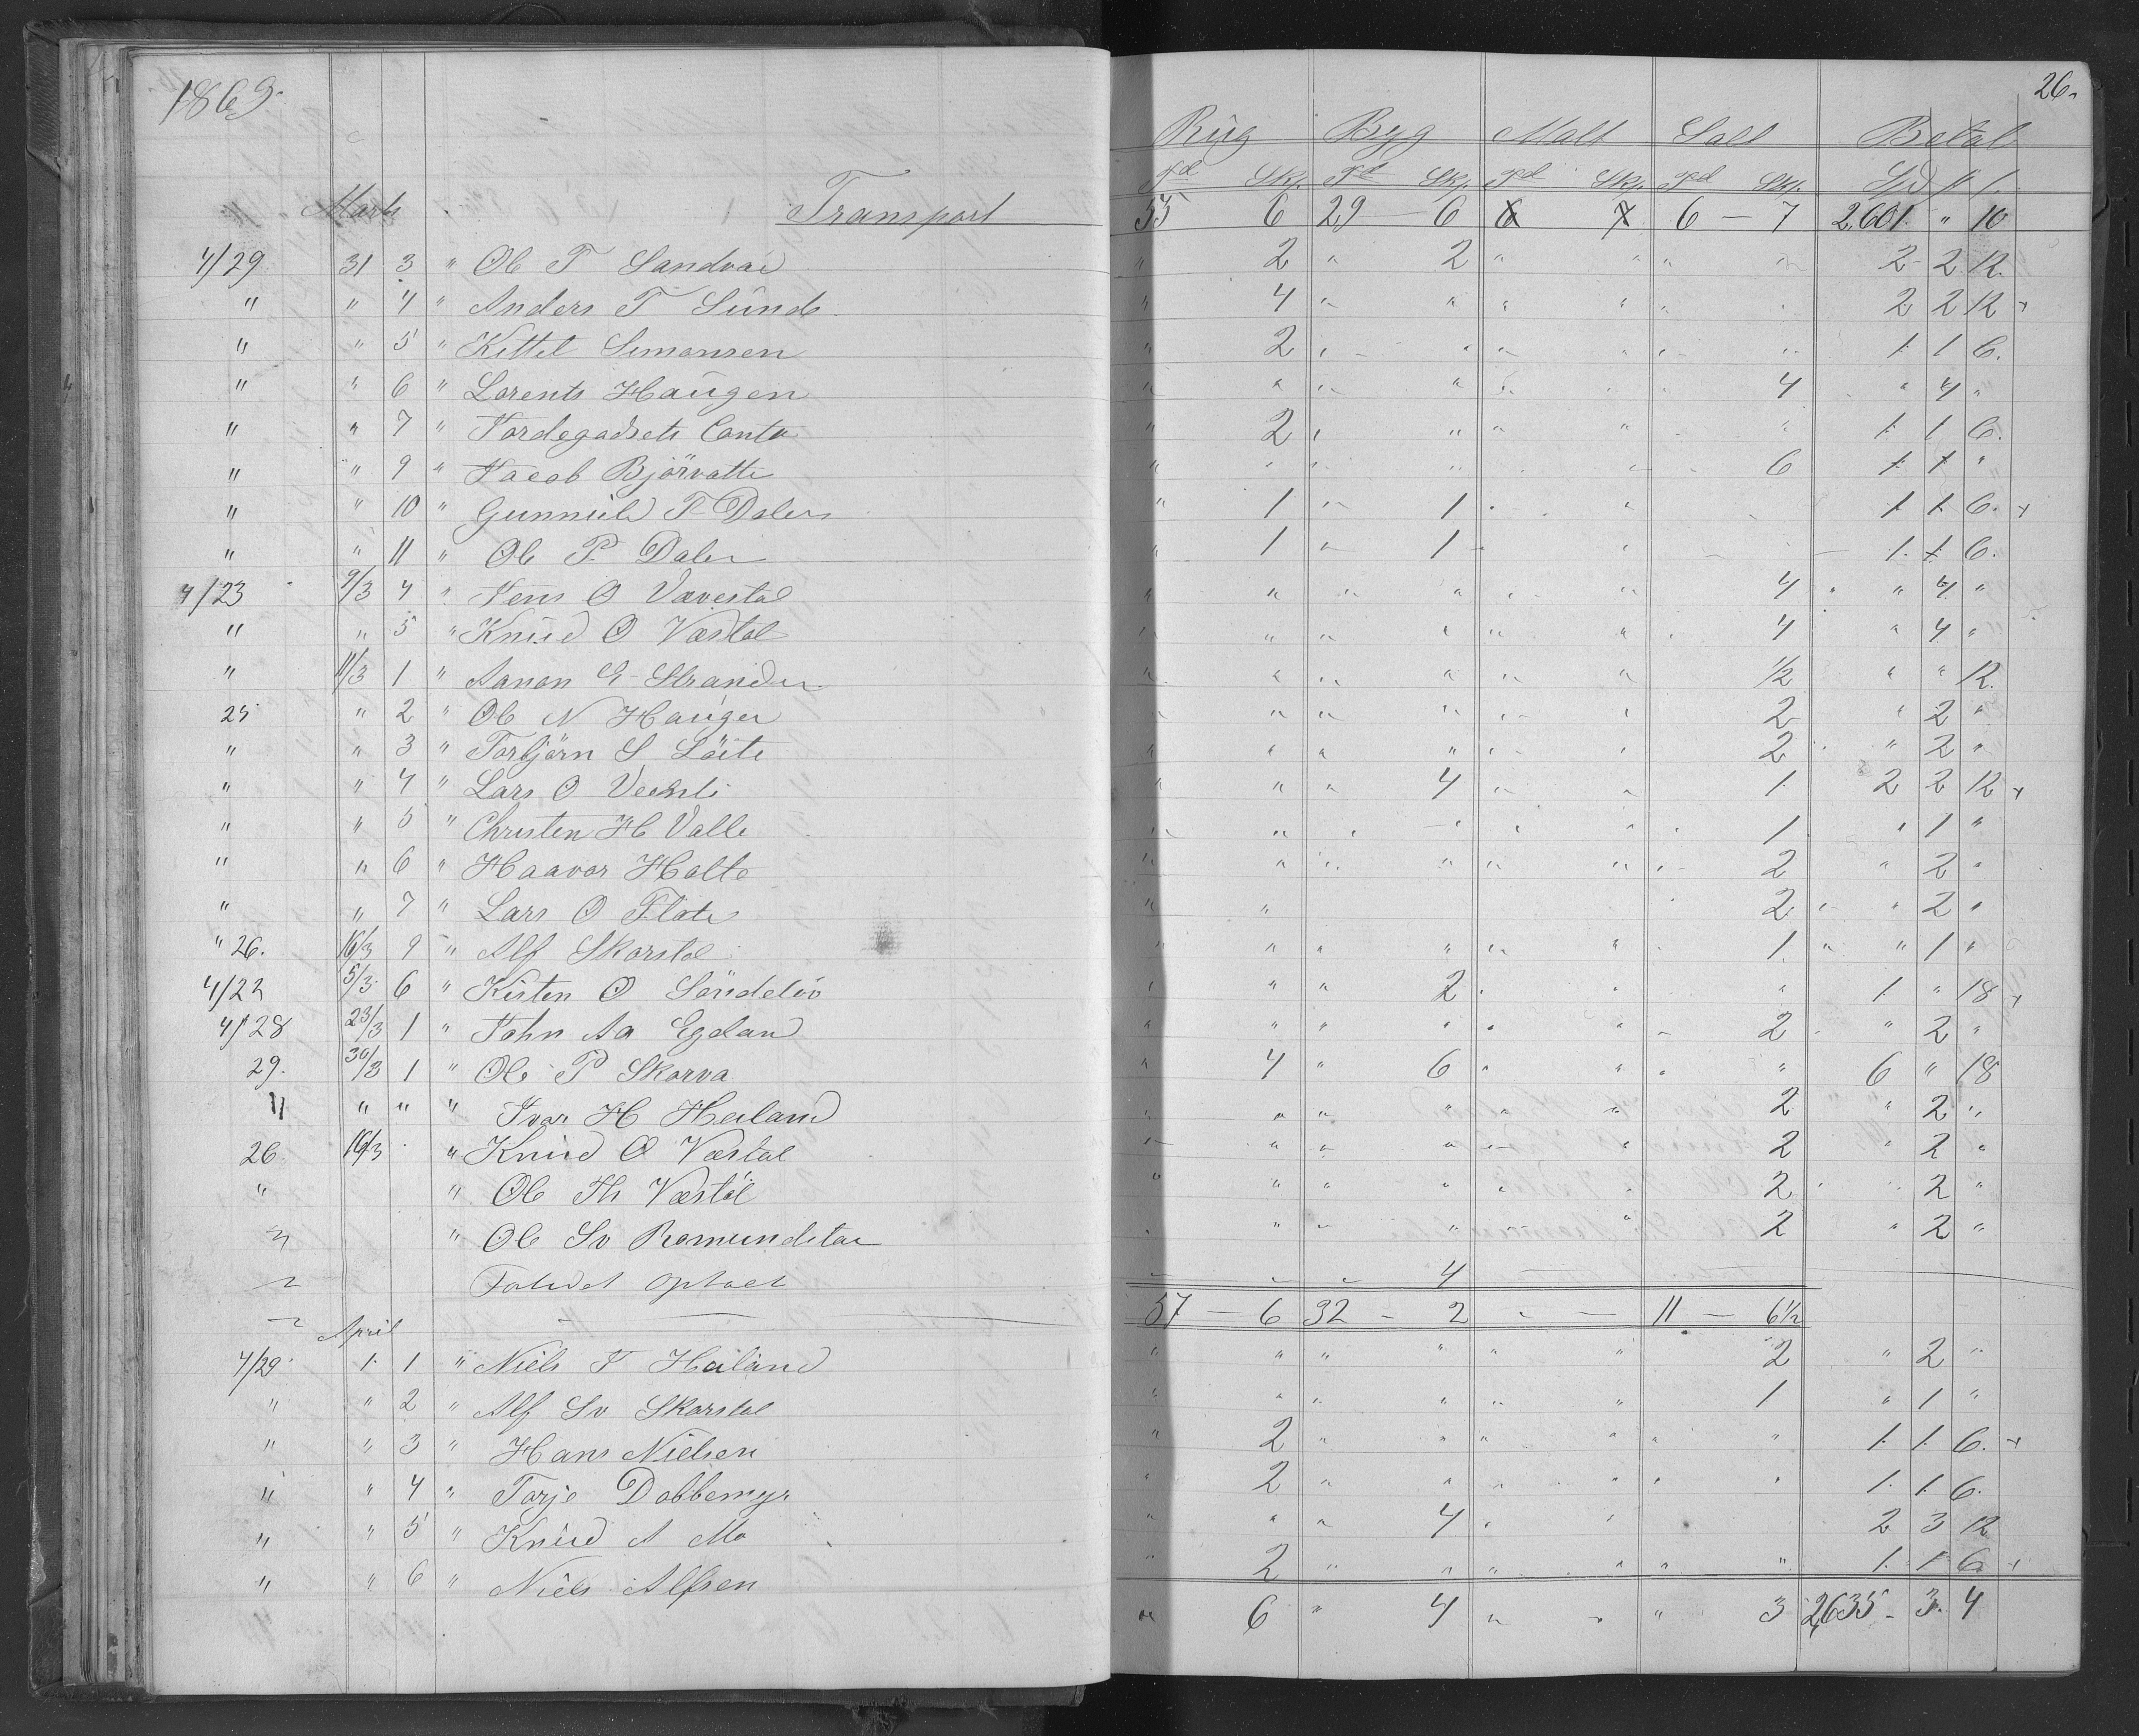 1869.
26.
Rug Byg Malt Salt Betal
Td Skp. Td Skp. Td Skp. Td Skp. Spd
Marts Transport 55 6 29 — 6 6 7 6 — 7 2,601. " 10
4/29 31 3 " Ole T Sandvar " 2 " 2 " " " " 2 2 12.
" " 4 " Anders T Sunde " 4 " " " " " 2 2 12 +
" " 5 " Kittel Simonsen " 2 " " " " " " 1 1 6.
" " 6 " Lorents Haugen " " " " " " " 4 " 4 "
" " 7 " Jordegodsets Conto " 2 " " " " " 1 1 6.
" " 9 " Jacob Bjørvatte " " " " " 6 1 1 "
" " 10 " Gunnuld T Dalen " 1 " 1 " " 1 1 6. +
" " 11 " Ole P. Dalen " 1 " 1 " 1. 1 6.
4/23 9/3 4 " Jens O Vævestøl " " " " " " 4 " " 4 "
" " 5 " Knud O Væstøl " " " " " " 4 " 4 "
" 11/3 1 " Aanon G Strander " " " " " " 1/2 " " 12.
25 " 2 " Ole N Haugen " " " " " " 2 " 2 "
" " 3 " Torbjørn S Løite " " " " " " 2 " 2 "
" " 4 " Lars O " " " 4 " " 1. 2 2 12 +
" " 5 " Christen H Valle " " " " " " 1 " 1 "
" " 6 " Haavor Holte " " " " " " " 2 " 2 "
" " 7 " Lars O Flate " " 2 " " 2 "
" 26. 16/3 9 " Alf Skorstøl " " " " " " 1. " " 1 "
4/22 5/3 6 " Kisten O Söndeløv " " " 2 " " " 1. " 18 +
4/28 23/3 1 " John Aa Egdan " " " " " " 2 " 2 "
29. 30/3 1 " Ole P Skorva " 4 " 6 " " " " 6 " 18
" " " " Ivar H Heiland " " " " " " 2 " 2 "
26. 16/3 " Knud O Væstøl " " " " " " 2 " 2 "
" " Ole Th Væstøl " " " " " " 2 " 2 "
" " Ole Sv Romundstøe " " " " " " 2 " 2 "
optaet 4
57 — 6 32 - 2 " — 11 — 6 1/2
April
4/29 1. 1 " Niels T Heiland " " " " " " 2 " 2 "
" " 2 " Alf Sv Skorstøl " " " " " " 1 " 1 "
" " 3 " Hans Nielsen " 2 " " " " " " 1. 1. 6. +
" " 4 " Torje Dobbemyr " 2 " " " " " " 1. 1. 6.
" " 5 " Knud A Mo " " " 4 " " 2 3 12
" " 6 " Niels Alfsen " 2 " " " " " " 1. 1 6. +
" 6 " 4 " " " 3 2,635 - 3. 4